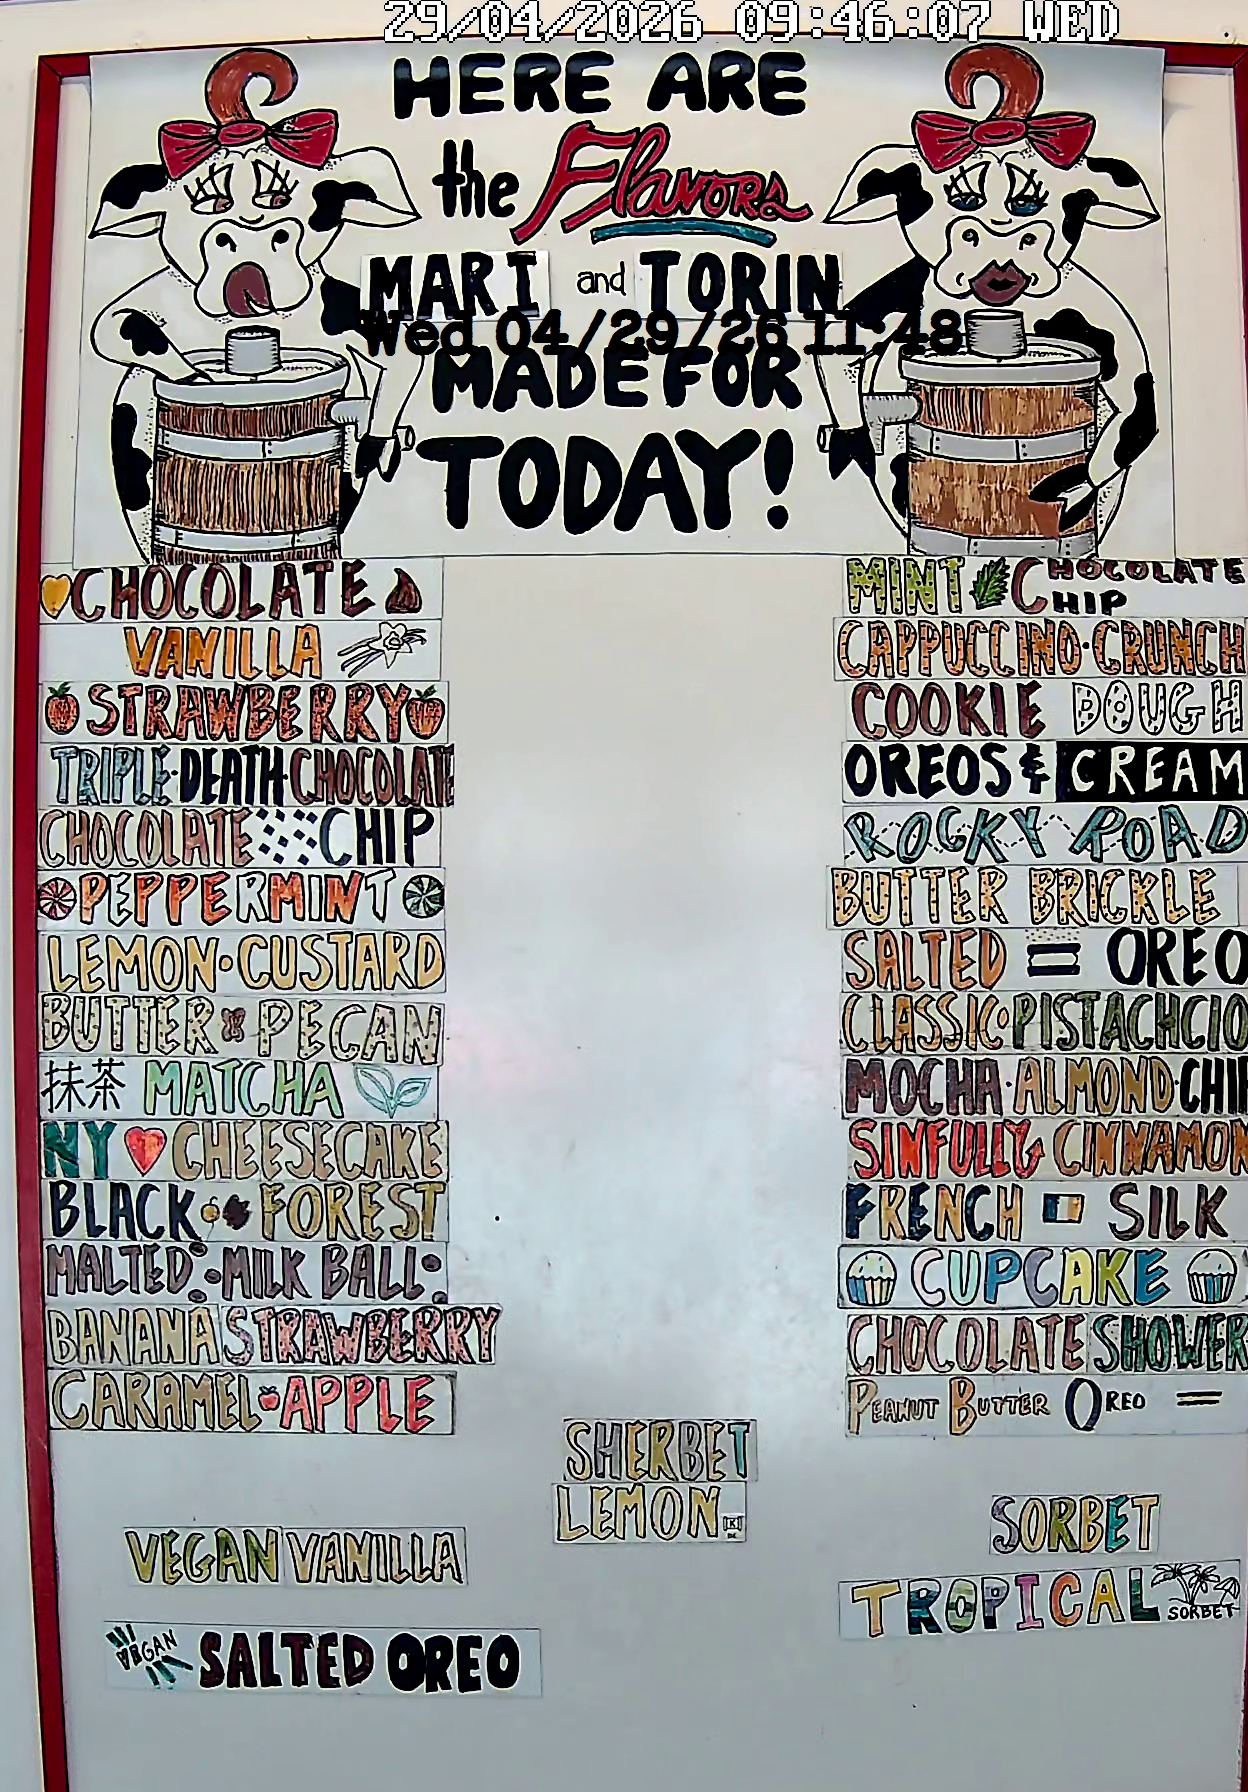 29/04/2026 09:46:07 WED
HERE ARE
the Flavors
MARI and TORIN
Wed 04/29/26 11:48
MADE FOR
TODAY!
CHOCOLATE
VANILLA
STRAWBERRY
TRIPLE·DEATH·CHOCOLATE
CHOCOLATE CHIP
PEPPERMINT
LEMON·CUSTARD
BUTTER PECAN
抹茶 MATCHA
NY CHEESECAKE
BLACK FOREST
MALTED·MILK BALL
BANANA STRAWBERRY
CARAMEL APPLE
MINT CHOCOLATE CHIP
CAPPUCCINO·CRUNCH
COOKIE DOUGH
OREOS & CREAM
ROCKY ROAD
BUTTER BRICKLE
SALTED OREO
CLASSIC PISTACHCIO
MOCHA·ALMOND·CHI
SINFULLY CINNAMON
FRENCH SILK
CUPCAKE
CHOCOLATE SHOWER
PEANUT BUTTER OREO
SHERBET
LEMON
SORBET
TROPICAL SORBET
VEGAN VANILLA
VEGAN SALTED OREO